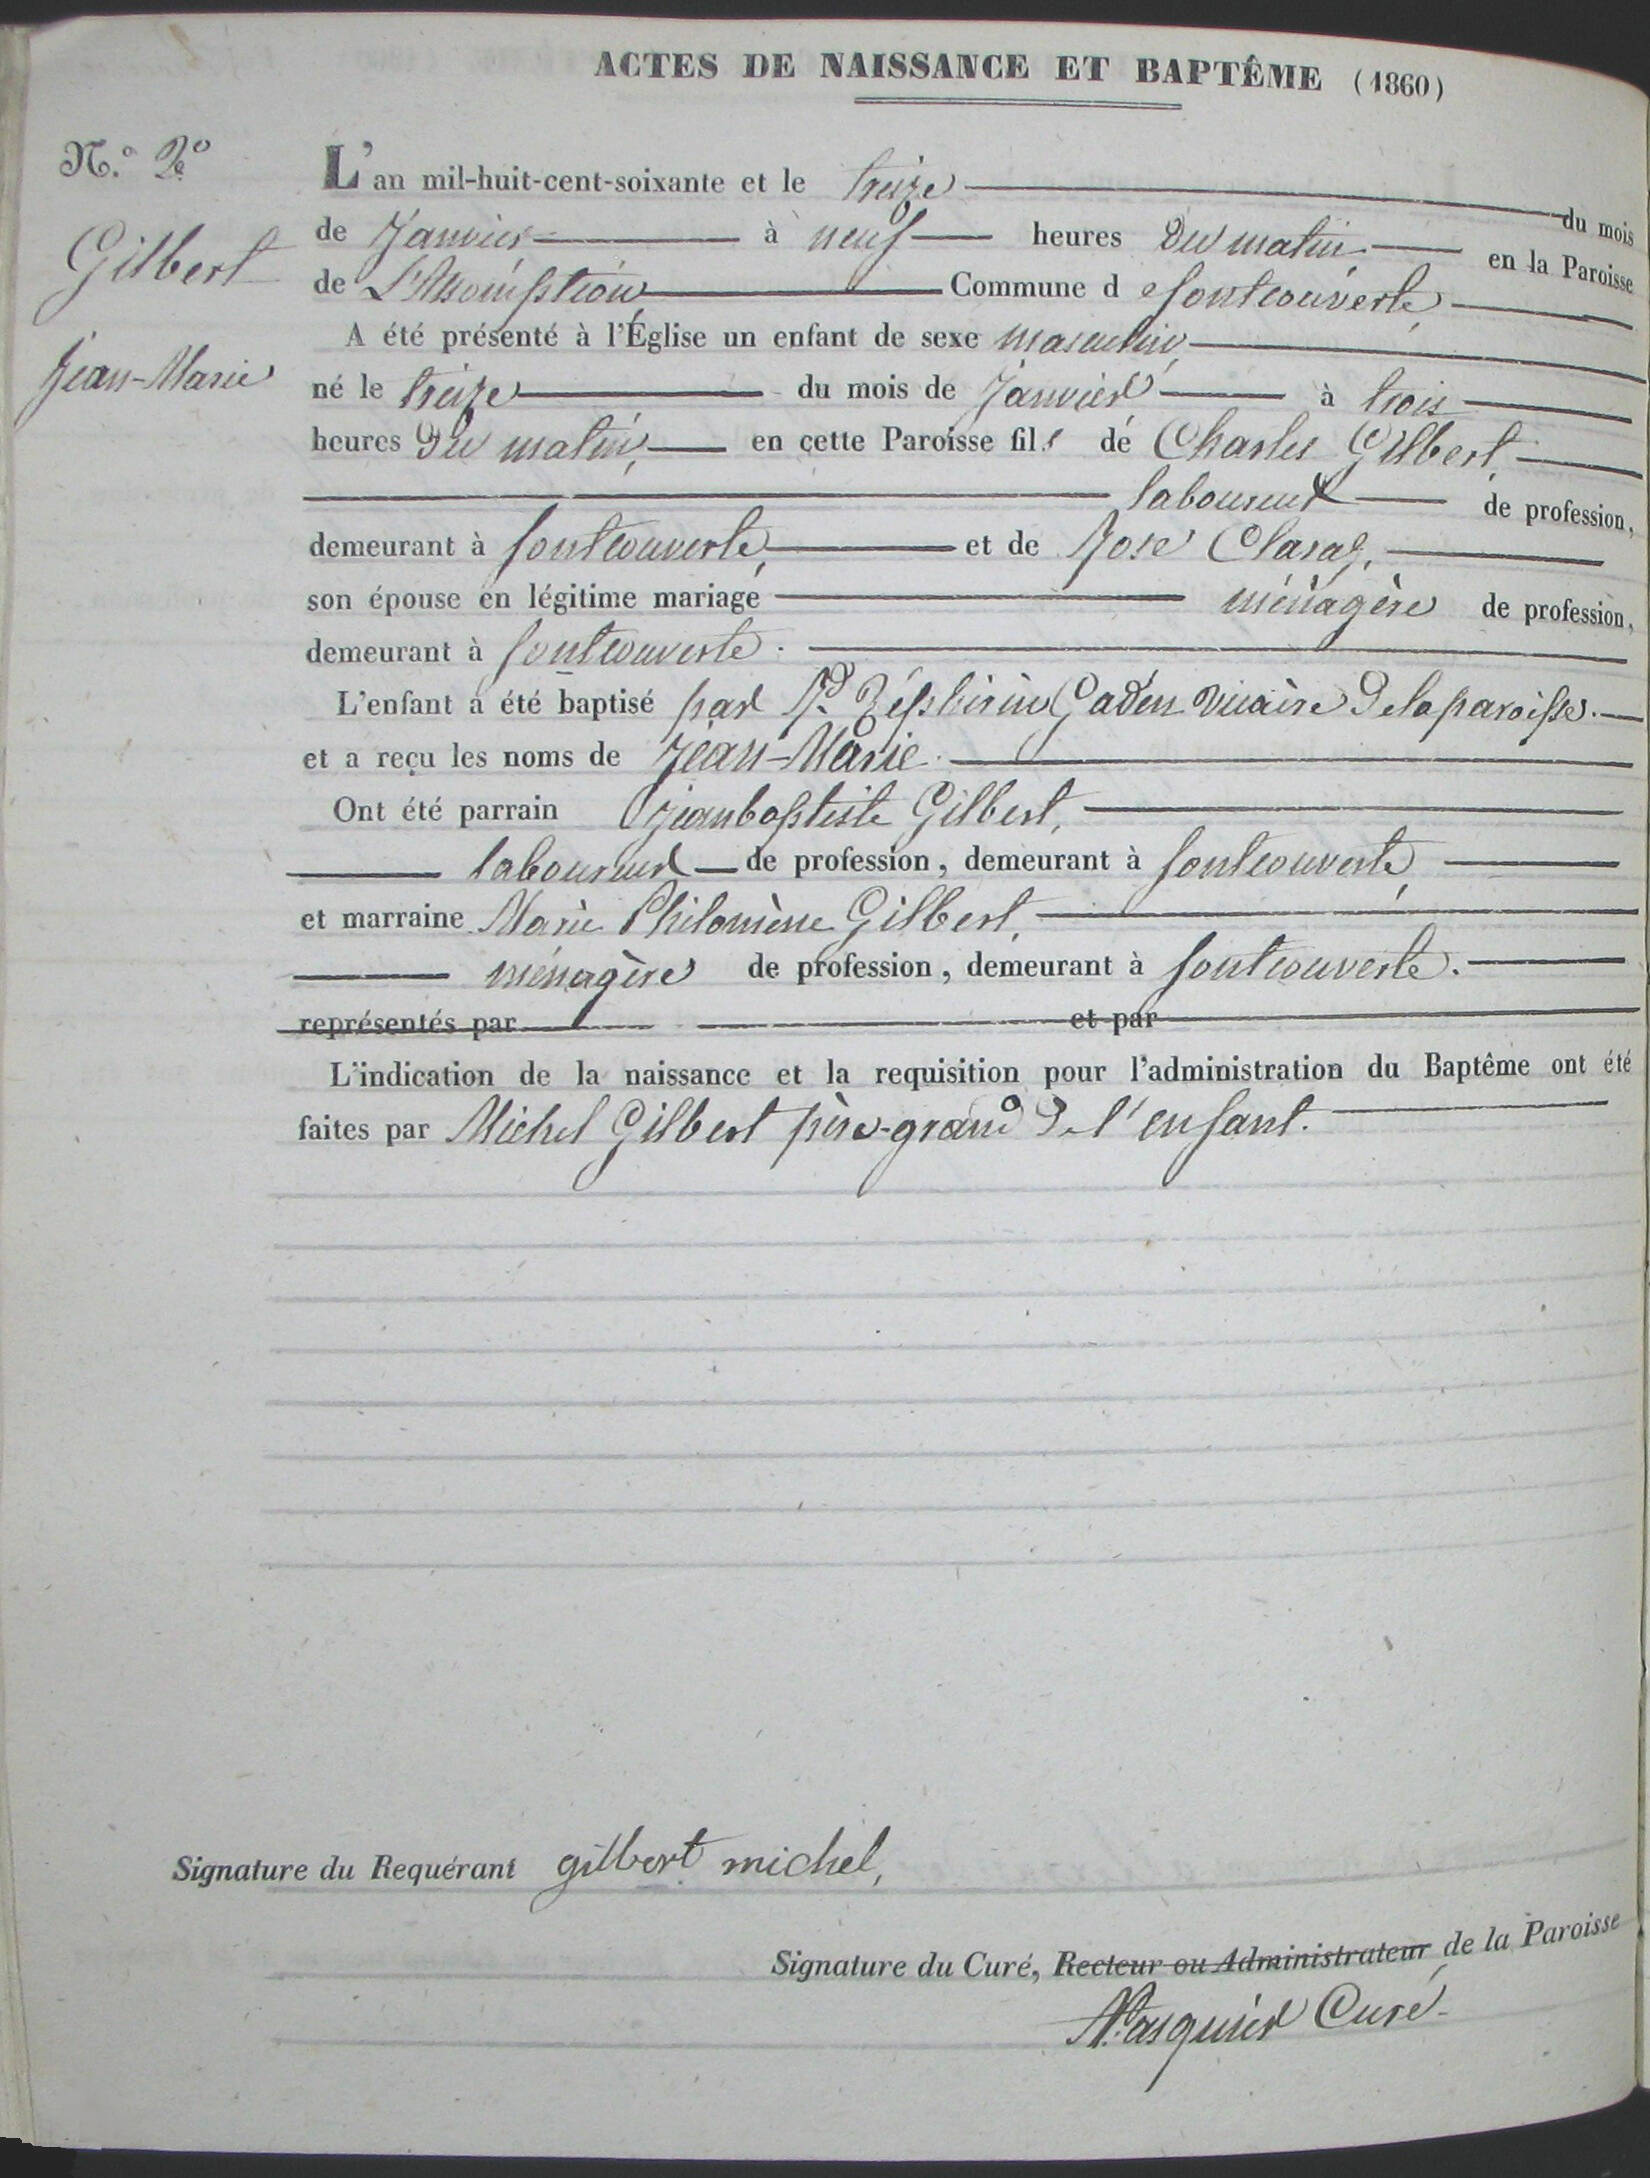 ACTES DE NAISSANCE ET BAPTÊME (1860)
N.º 2º
Gilbert
Jean-Marie
L'an mil-huit-cent-soixante et le treize du mois
de Janvier à neuf heures du matin en la Paroisse
de L'Assomption Commune de fontcouverte
A été présenté à l'Église un enfant de sexe masculin,
né le treize du mois de Janvier à trois
heures du matin, en cette Paroisse fils de Charles Gilbert,
laboureur de profession,
demeurant à fontcouverte, et de Rose Claraz,
son épouse en légitime mariage ménagère de profession,
demeurant à fontcouverte.
L'enfant a été baptisé par Rd Zéphirin Gaden vicaire de la paroisse.
et a reçu les noms de Jean-Marie.
Ont été parrain Jean baptiste Gilbert,
laboureur de profession, demeurant à fontcouverte,
et marraine Marie Philomène Gilbert,
ménagère de profession, demeurant à fontcouverte.
représentés par et par
L'indication de la naissance et la requisition pour l'administration du Baptême ont été
faites par Michel Gilbert père-grand de l'enfant.
Signature du Requérant gilbert michel,
Signature du Curé, Recteur ou Administrateur de la Paroisse
Curé